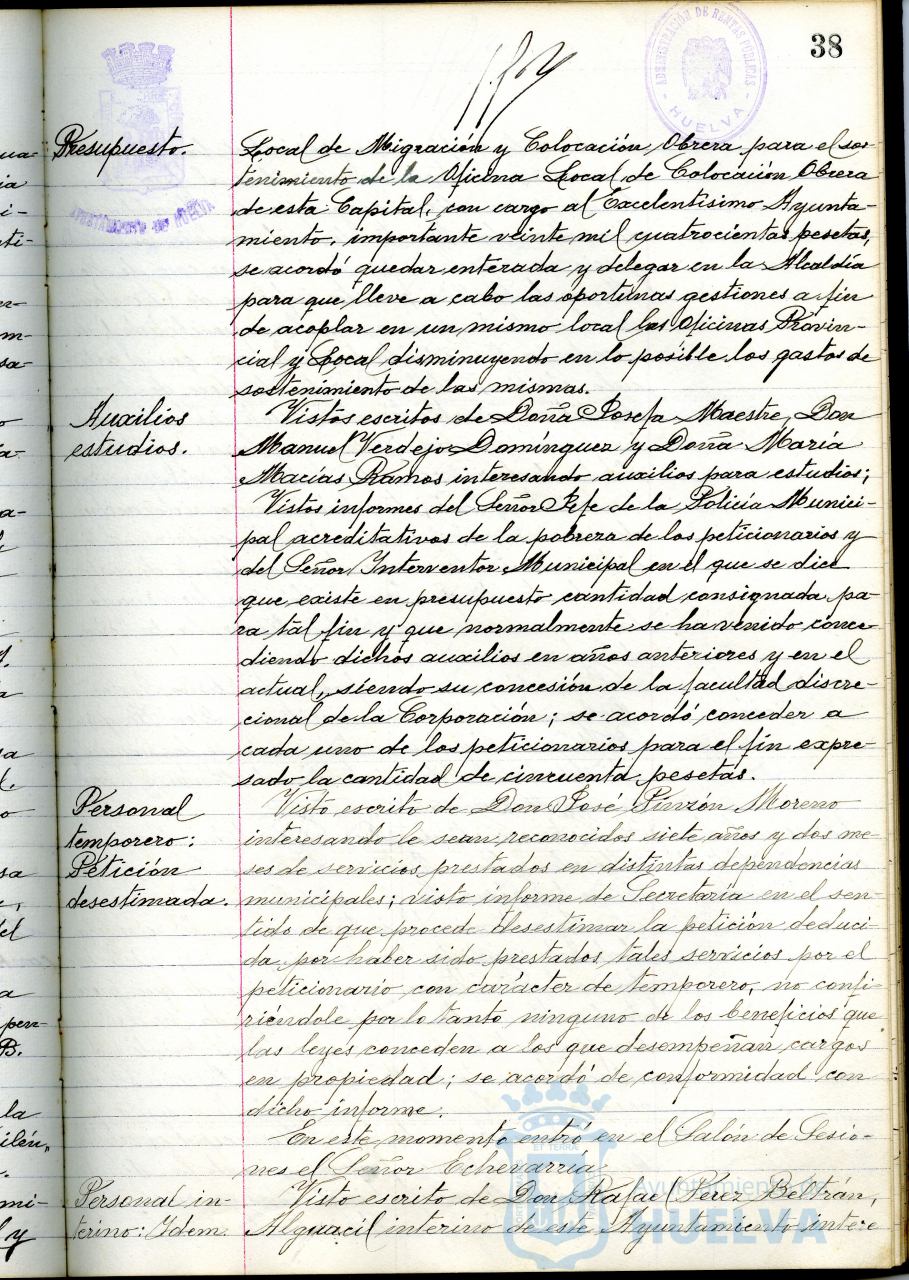 38
ADMINISTRACIÓN DE RENTAS PÚBLICAS
HUELVA
AYUNTAMIENTO DE HUELVA
Presupuesto.
Local de Migración y Colocación Obrera para el sos-
tenimiento de la Oficina Local de Colocación Obrera
de esta Capital, con cargo al Excelentísimo Ayunta-
miento, importante veinte mil cuatrocientas pesetas,
se acordó quedar enterada y delegar en la Alcaldía
para que lleve a cabo las oportunas gestiones a fin
de acoplar en un mismo local las Oficinas Provin-
cial y Local disminuyendo en lo posible los gastos de
sostenimiento de las mismas.
Auxilios
estudios.
Vistos escritos de Doña Josefa Maestre, Don
Manuel Verdejo Domínguez y Doña María
Macías Ramos interesando auxilios para estudios;
Vistos informes del Señor Jefe de la Policía Munici-
pal acreditativos de la pobreza de los peticionarios y
del Señor Interventor Municipal en el que se dice
que existe en presupuesto cantidad consignada pa-
ra tal fin y que normalmente se ha venido conce-
diendo dichos auxilios en años anteriores y en el
actual, siendo su concesión de la facultad discre-
cional de la Corporación; se acordó conceder a
cada uno de los peticionarios para el fin expre-
sado la cantidad de cincuenta pesetas.
Personal
temporero:
Petición
desestimada.
Visto escrito de Don José Pinzón Moreno
interesando le sean reconocidos siete años y dos me-
ses de servicios prestados en distintas dependencias
municipales; visto informe de Secretaría en el sen-
tido de que procede desestimar la petición deduci-
da por haber sido prestados tales servicios por el
peticionario con carácter de temporero, no confi-
riéndole por lo tanto ninguno de los beneficios que
las leyes conceden a los que desempeñan cargos
en propiedad; se acordó de conformidad con
dicho informe.
En este momento entró en el Salón de Sesio-
nes el Señor Echevarría.
Personal in-
terino: Idem.
Visto escrito de Don Rafael Pérez Beltrán,
Alguacil interino de este Ayuntamiento intere-
Ayuntamiento de
HUELVA